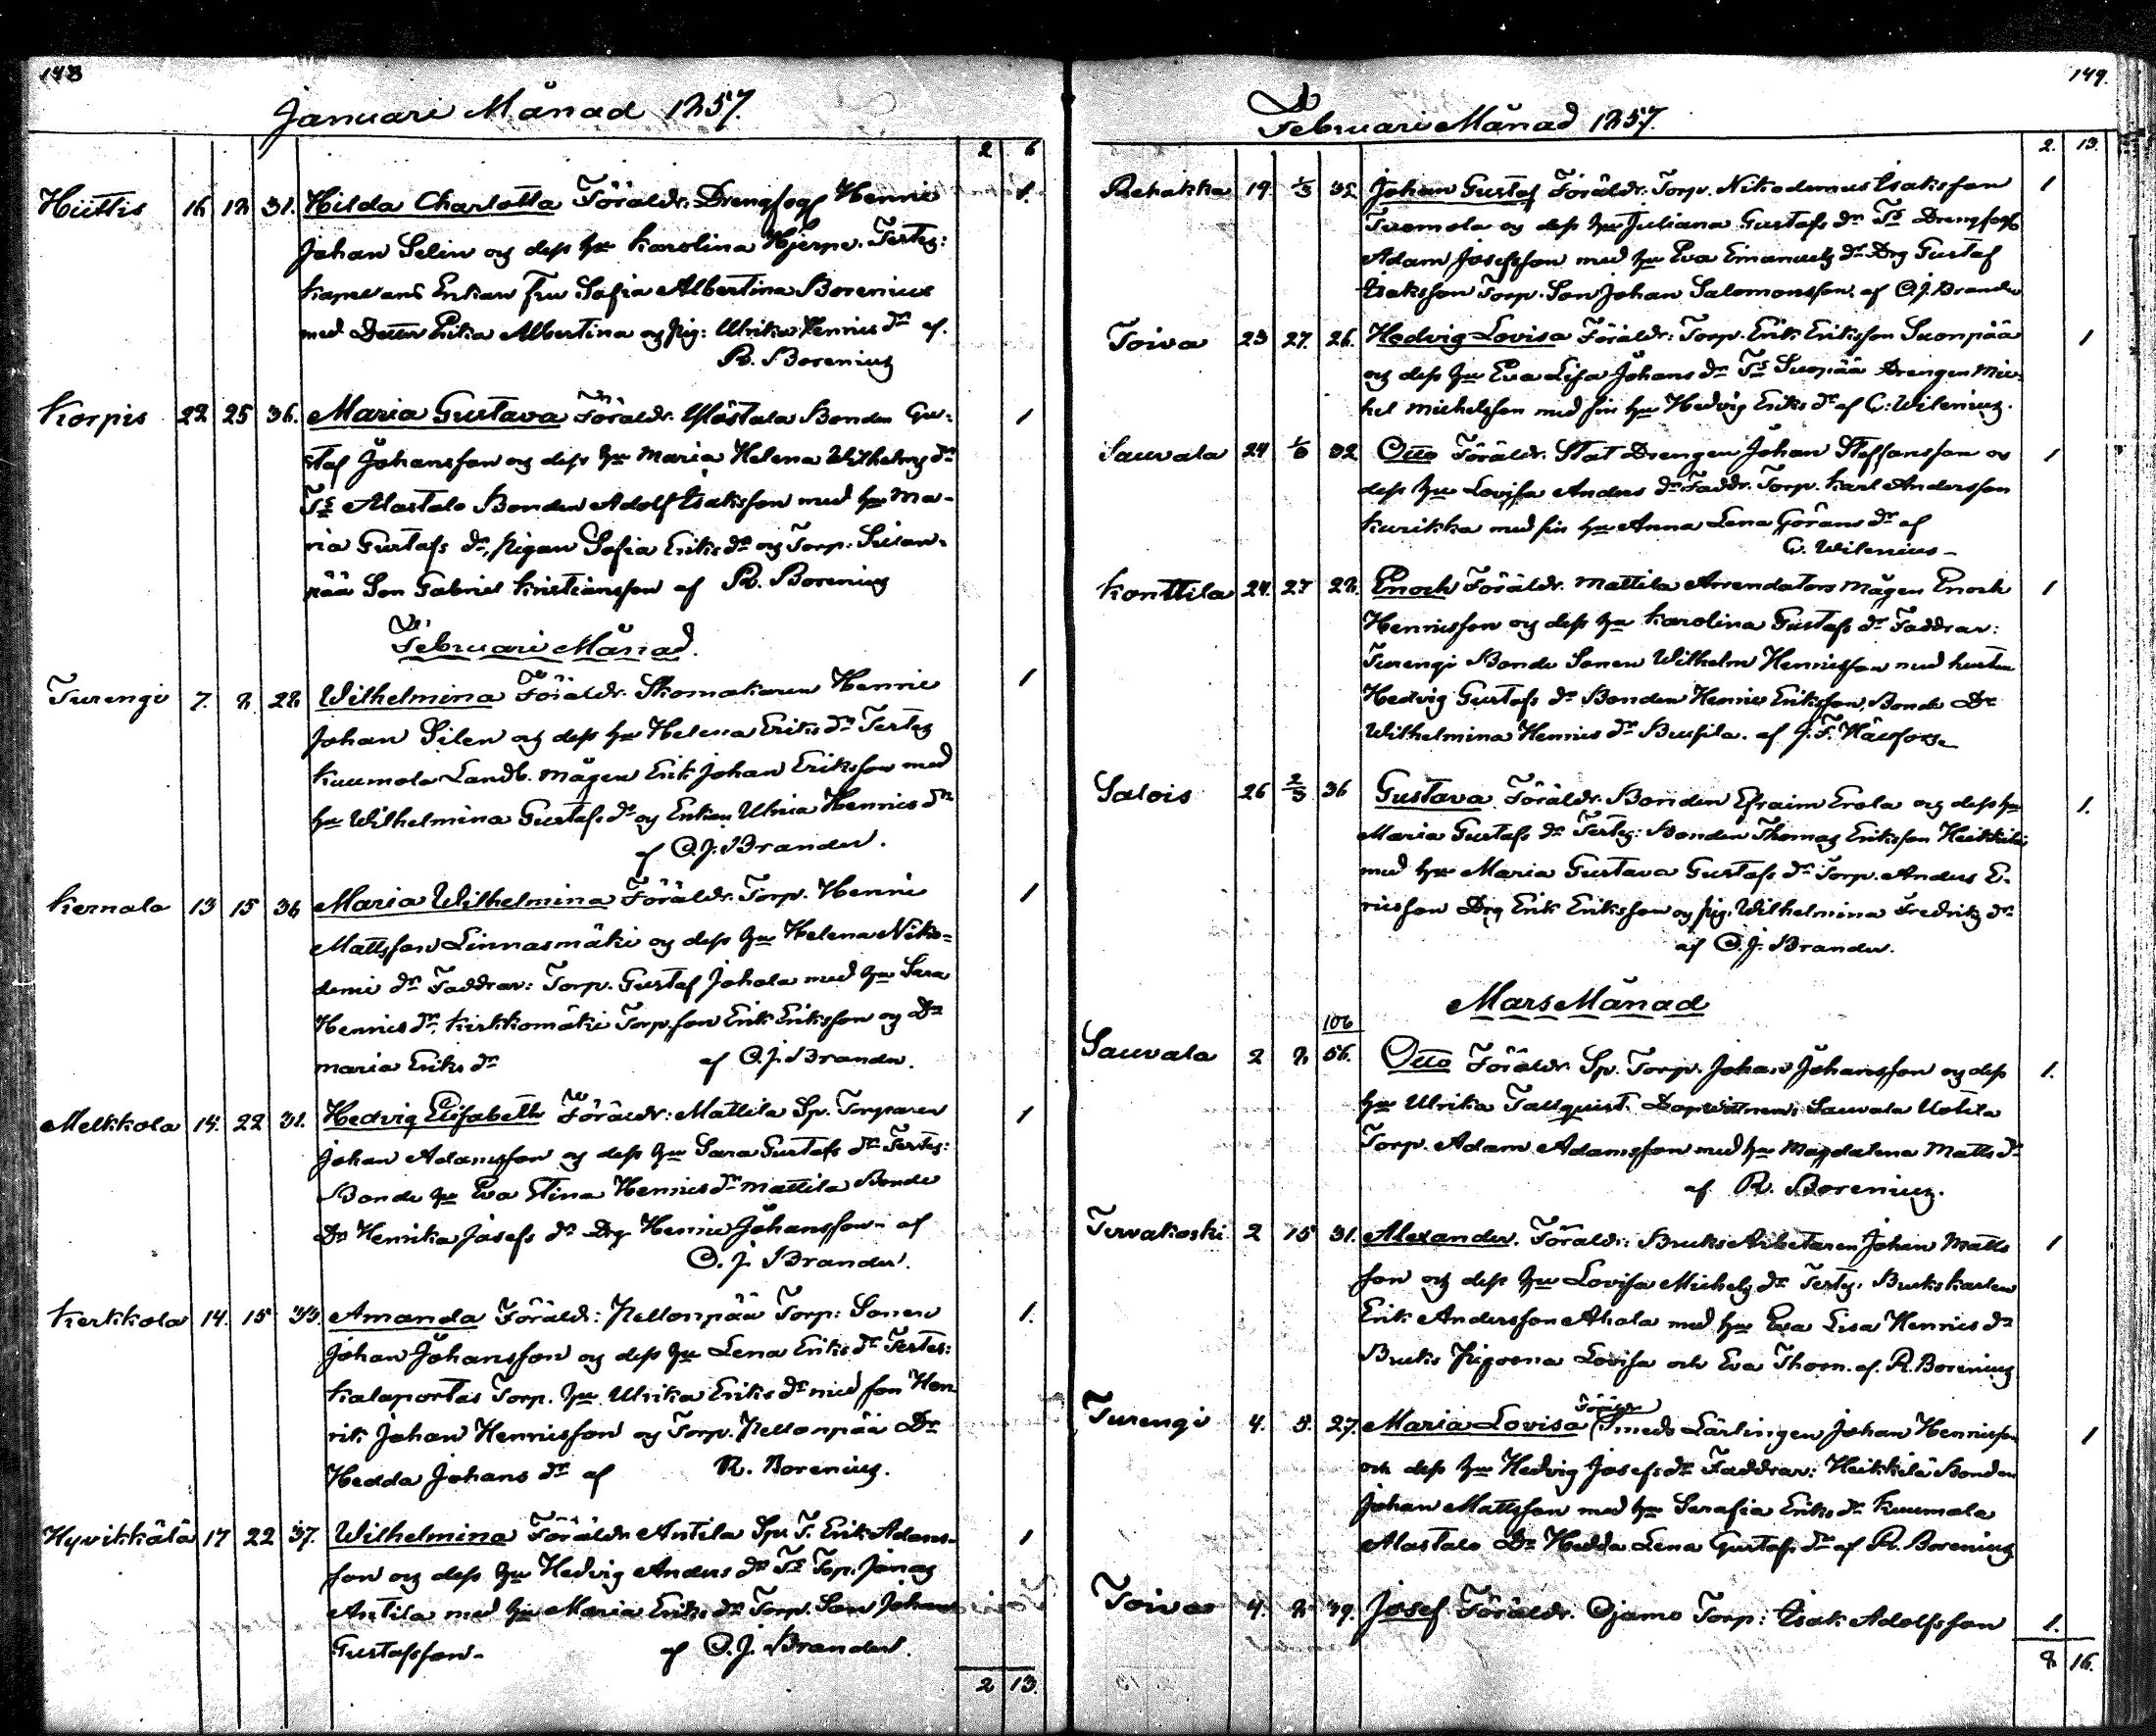 148
Januari Månad 1857.
2 6
Hiittis 16 18 31. Hilda Charlotta Föräldr. Drengfogd Henric 1.
Johan Selin og dess hu Karolina Hjerpe. Testes:
Enkan Fru Sofia Albertina Borenius
med Erika Albertina og pig: Ulrika Henrics dr af.
R. Borenius
Korpis 22 25 36. Maria Gustava Föräldr. Yöstala Bonden Gu- 1
staf Johansson og dess hu Maria Helena Wilhelms dr
Ts Alastalo Bonden Adolf Isaksson med hu Ma-
ria Gustafs dr, Pigan Sofia Eriks dr og Torp:
pää Son Gabriel Kristiansson af R. Borenius
Februari Månad.
Turengi 7. 8. 28 Wilhelmina Föräldr. Skomakaren Henric 1
Johan Silen og dess hu Helena Eriks dr Testes
Kuumola Landb. Mågen Erik Johan Eriksson med
hu Wilhelmina Gustafs dr og Enkan Ulrica Henrics dr
af C. J. Brander.
Kernala 13 15 36 Maria Wilhelmina Föräldr. Torp. Henric 1
Mattsson Linnasmäki og dess hu Helena Niko-
demi dr Faddrar: Torp. Gustaf Johola med hu Sara
Henrics dr, Kirkkomäki Torp. son Erik Eriksson og Dr
Maria Eriks dr af C. J. Brander.
Melkkola 14. 22 31. Hedvig Elisabeth Föräldr: Mattila Sp. Torparen 1
Johan Adamsson og dess hu Sara Gustafs dr Testes:
Bonde hu Eva Stina Henrics dr Mattila Bonde
Dr Henrika Josefs dr Drg Henric Johansson - af
C. J. Brander.
Kerkkola 14. 15 33. Amanda Föräldr: Pellonpää Torp: Sonen 1.
Johan Johansson og dess hu Lena Eriks dr Testes:
Kalaportas Torp. hu Ulrika Eriks dr med son Hen
rik Johan Henricsson og Torp. Pellonpää Dr
Hedda Johans dr af R. Borenius.
Hyvikkälä 17 22 37. Wilhelmina Föräldr Antila Sp. T. Erik Adams- 1
son og dess hu Hedvig Anders dr Ts Torp. Jonas
Antila med hu Maria Eriks dr Torp. Son Johan
Gustafsson - af C. J. Brander.
2 13.
149.
Februari Månad 1857.
2. 13.
Rehakka 19 1/3 32 Johan Gustaf Föräldr. Torp. Nikodemus Isaksson 1
Tuomola og dess hu Juliana Gustafs dr Ts Drengfogd
Adam Josefsson med hu Eva Emanuels dr Drg Gustaf
Isaksson Torp. Son Johan Salomonsson. af C. J. Brander
Toiva 23 27. 26. Hedvig Lovisa Föräldr: Torp. Erik Eriksson Suonpää 1
og dess hu Eva Lisa Johans dr Ts Suonpää Drengen Mic-
hel Michelsson med sin hu Hedvig Eriks dr af C. Wilenius.
Sauvala 24 1/3 32 Otto Föräldr. Stat Drengen Johan Steffansson og 1
dess hu Lovisa Anders dr Faddr. Torp. Karl Andersson
Kurikka med sin hu Anna Lena Görans dr af
C. Wilenius -
Konttila 24. 27 28. Enoch Föräldr. Mattila Arrendators Mågen Enoch 1
Henricsson og dess hu Karolina Gustafs dr Faddrar:
Turengi Bonde Sonen Wilhelm Henricsson med hustru
Hedvig Gustafs dr Bonden Henric Eriksson, Bonde Dr
Wilhelmina Henrics dr af J. F.
Salois 26 2/3 36 Gustava Föräldr. Bonden Efraim Erola og dess hu 1.
Maria Gustafs dr Testes: Bonden Thomas Eriksson Heikkilä
med hu Maria Gustava Gustafs dr Torp. Anders E-
ricsson Drg Erik Eriksson og pig. Wilhelmina Fredriks dr
af C. J. Brander.
Mars Månad
106
Sauvala 2 8 56. Otto Föräldr. Sp. Torp. Johan Johansson og dess 1.
hu Ulrika Tallquist. Dopvittnen: Sauvala Uotila
Torp. Adam Adamsson med hu Magdalena Matts dr
af R. Borenius.
Tervakoski 2 15 31. Alexander. Föräldr: Bruks Arbetaren Johan Matts 1
son og dess hu Lovisa Michels dr Testes: Brukskarlen
Erik Andersson Ahola med hu Eva Lisa Henrics dr
Bruks Pigorna Lovisa och Eva Thorn. af. R. Borenius
Föräldr
Turengi 4. 5. 27. Maria Lovisa Smeds Lärlingen Johan Henricsson 1
och dess hu Hedvig Josefs dr Faddrar: Heikkilä Bonden
Johan Mattsson med hu Serafia Eriks dr Kuumola
Alastalo Dr Hedda Lena Gustafs dr af R. Borenius
Toiva 4. 8 39. Josef Föräldr. Ojamo Torp: Isak Adolfsson 1.
8 16.